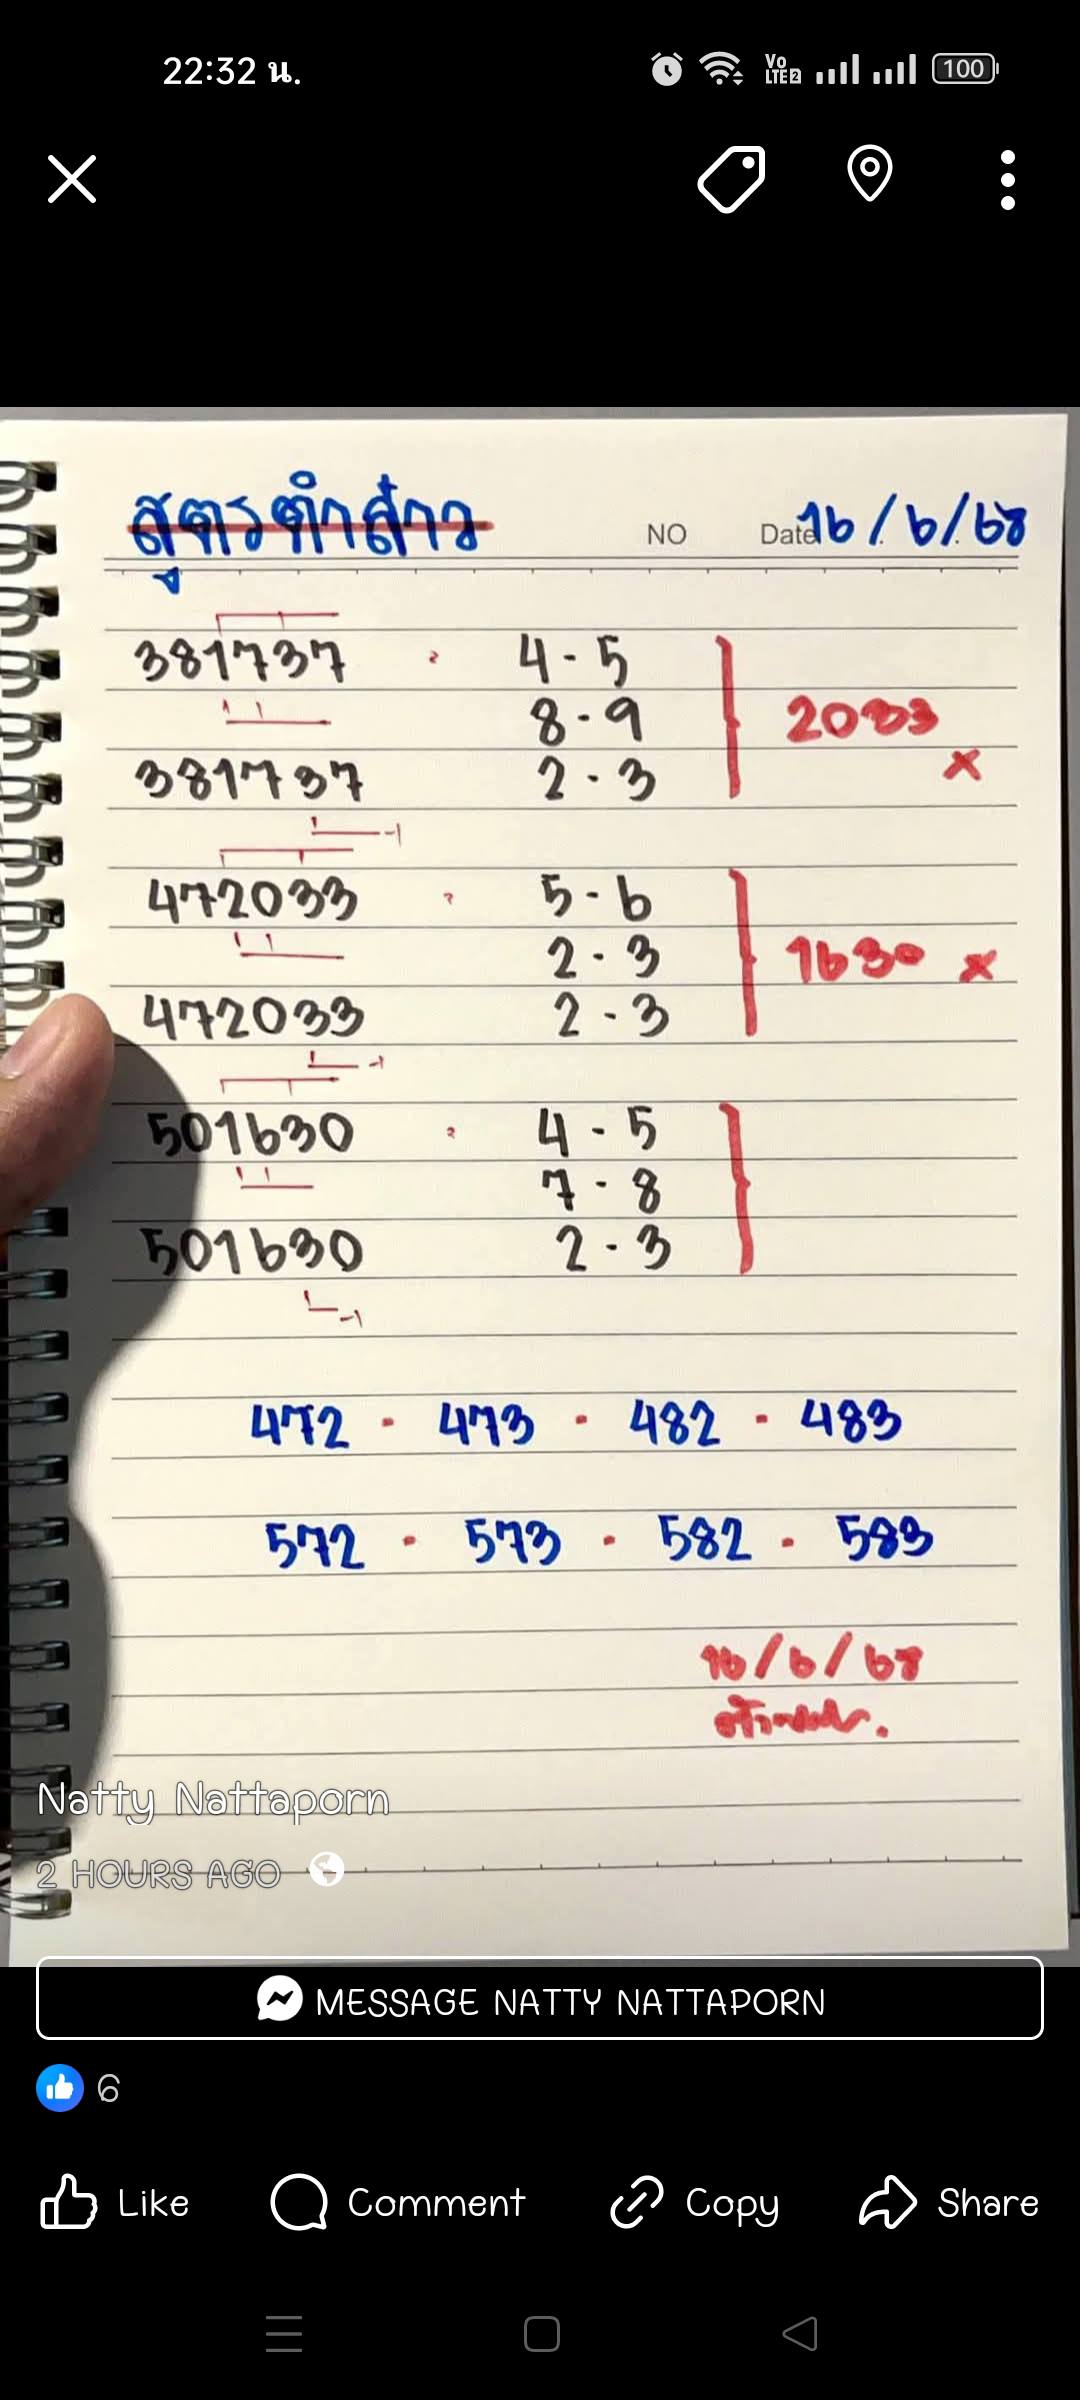 22:32 น.
Vo LTE2 100
สูตรตำส่าว
NO Date 16/6/68
381737 4-5
8-9 2033 x
381737 2-3
-1
472033 5-6
2-3 1630 x
472033 2-3
-1
501630 4-5
7-8
501630 2-3
-1
472 - 473 - 482 - 483
572 - 573 - 582 - 583
16/6/68
Natty Nattaporn
2 HOURS AGO
MESSAGE NATTY NATTAPORN
6
Like Comment Copy Share